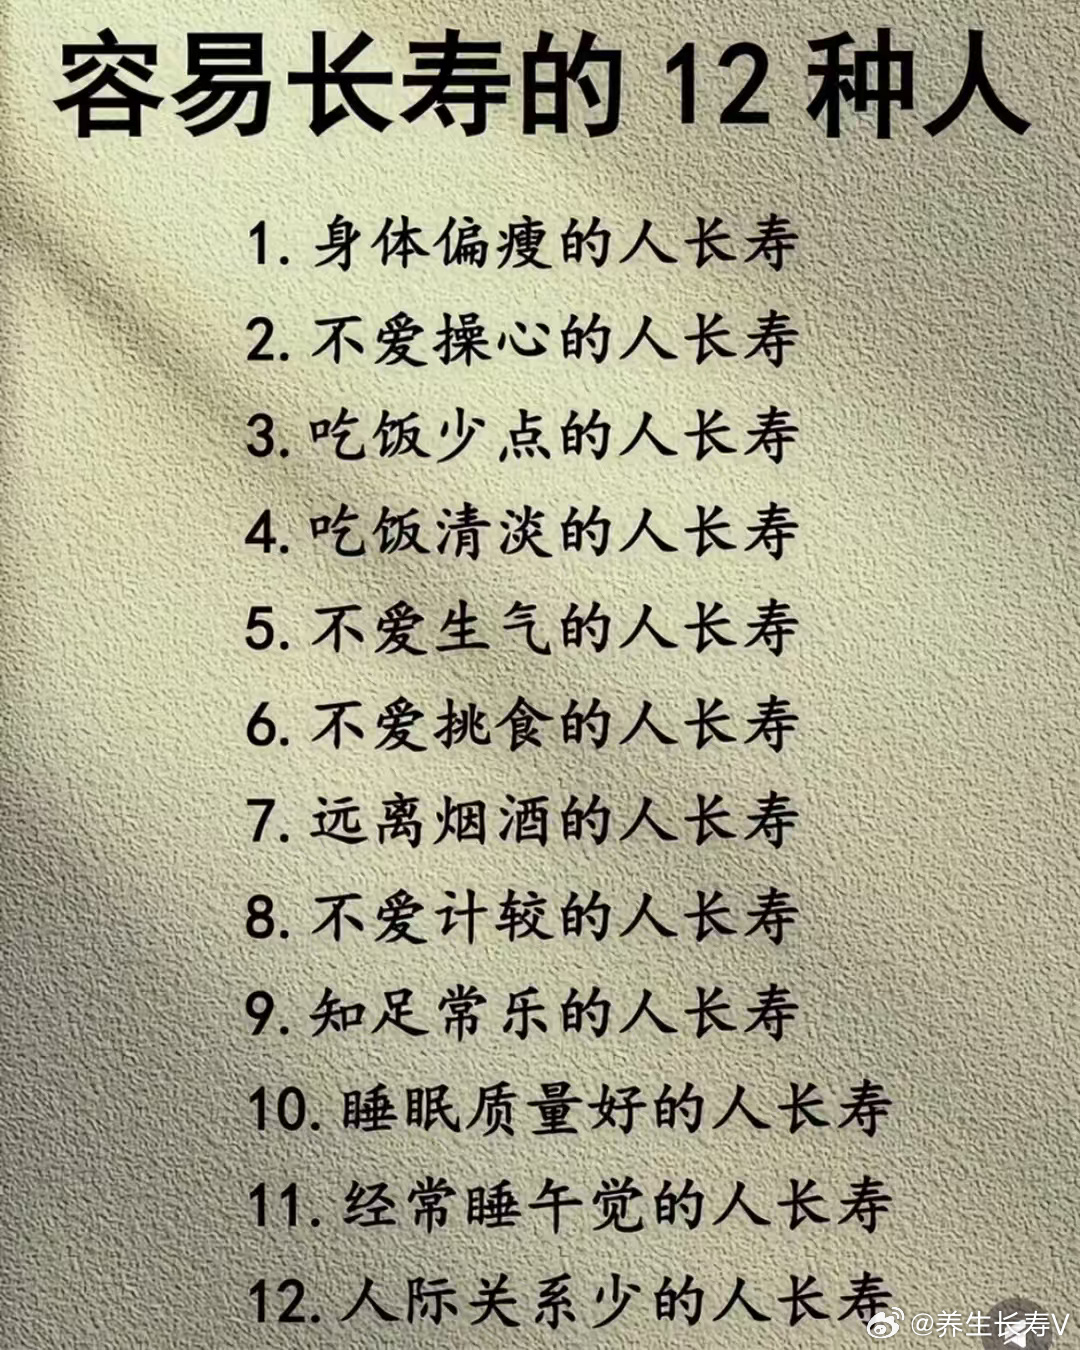 容易长寿的12种人
1.身体偏瘦的人长寿
2.不爱操心的人长寿
3.吃饭少点的人长寿
4.吃饭清淡的人长寿
5.不爱生气的人长寿
6.不爱挑食的人长寿
7.远离烟酒的人长寿
8.不爱计较的人长寿
9.知足常乐的人长寿
10.睡眠质量好的人长寿
11.经常睡午觉的人长寿
12.人际关系少的人长寿
@养生长寿V